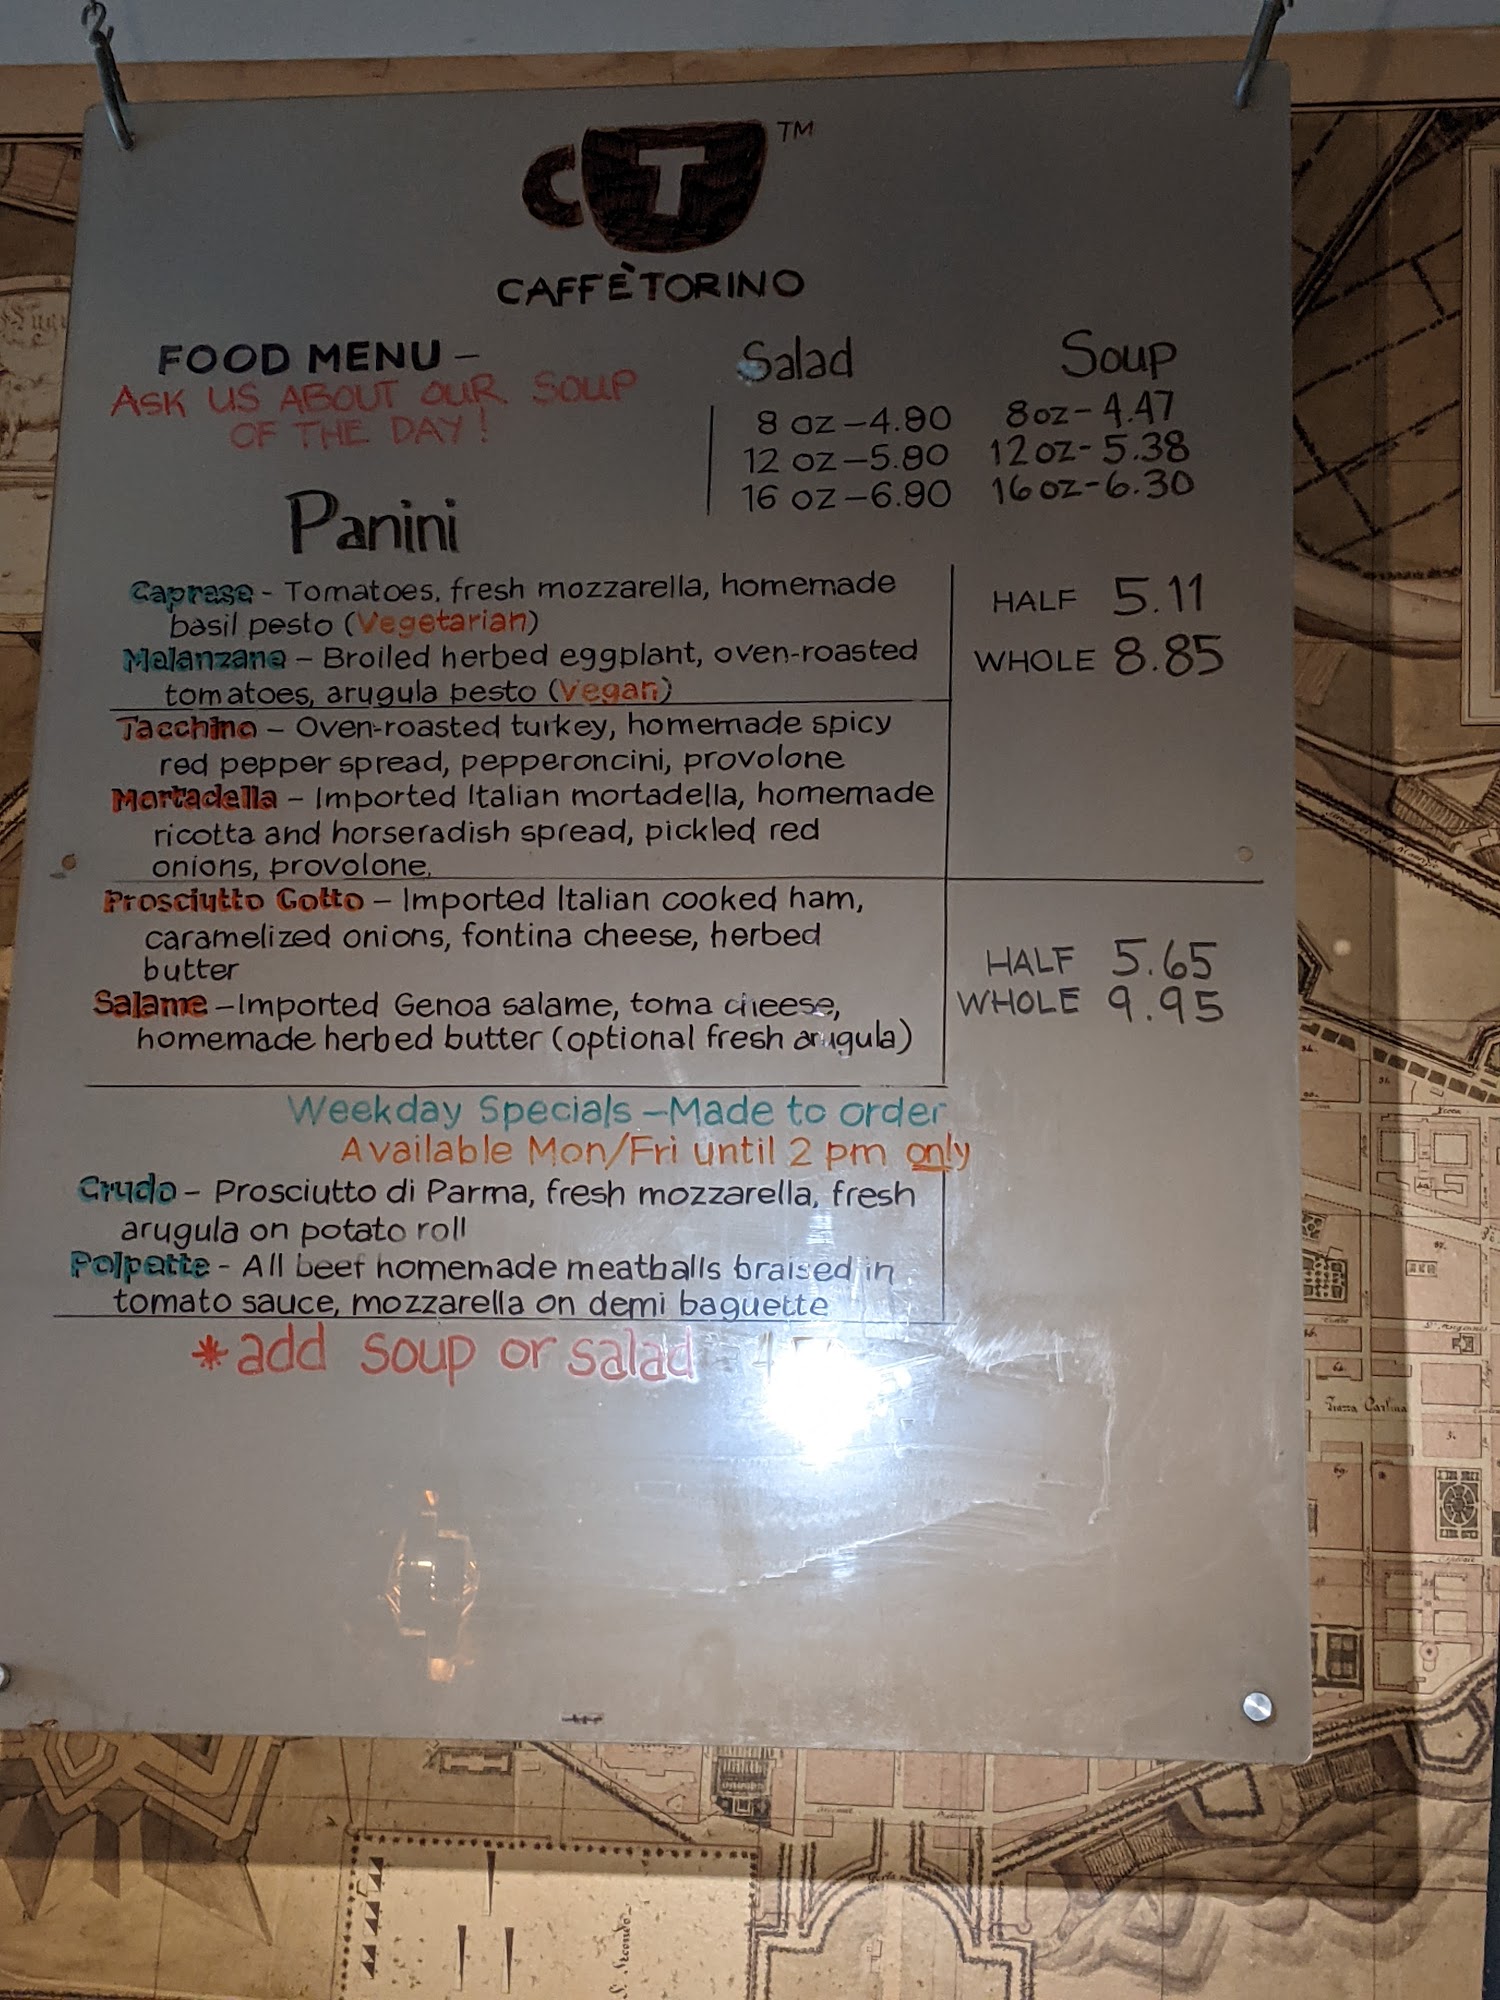 CT TM
CAFFÈTORINO
FOOD MENU –
ASK US ABOUT OUR SOUP
OF THE DAY!
Salad
8 oz – 4.90
12 oz – 5.90
16 oz – 6.90
Soup
8 oz - 4.47
12 oz - 5.38
16 oz - 6.30
Panini
Caprese - Tomatoes, fresh mozzarella, homemade
basil pesto (Vegetarian)
Melanzane – Broiled herbed eggplant, oven-roasted
tomatoes, arugula pesto (Vegan)
Tacchino – Oven-roasted turkey, homemade spicy
red pepper spread, pepperoncini, provolone
Mortadella – Imported Italian mortadella, homemade
ricotta and horseradish spread, pickled red
onions, provolone.
HALF 5.11
WHOLE 8.85
Prosciutto Cotto – Imported Italian cooked ham,
caramelized onions, fontina cheese, herbed
butter
Salame – Imported Genoa salame, toma cheese,
homemade herbed butter (optional fresh arugula)
HALF 5.65
WHOLE 9.95
Weekday Specials – Made to order
Available Mon/Fri until 2 pm only
Crudo – Prosciutto di Parma, fresh mozzarella, fresh
arugula on potato roll
Polpette - All beef homemade meatballs braised in
tomato sauce, mozzarella on demi baguette
*add soup or salad
Piazza Carlina